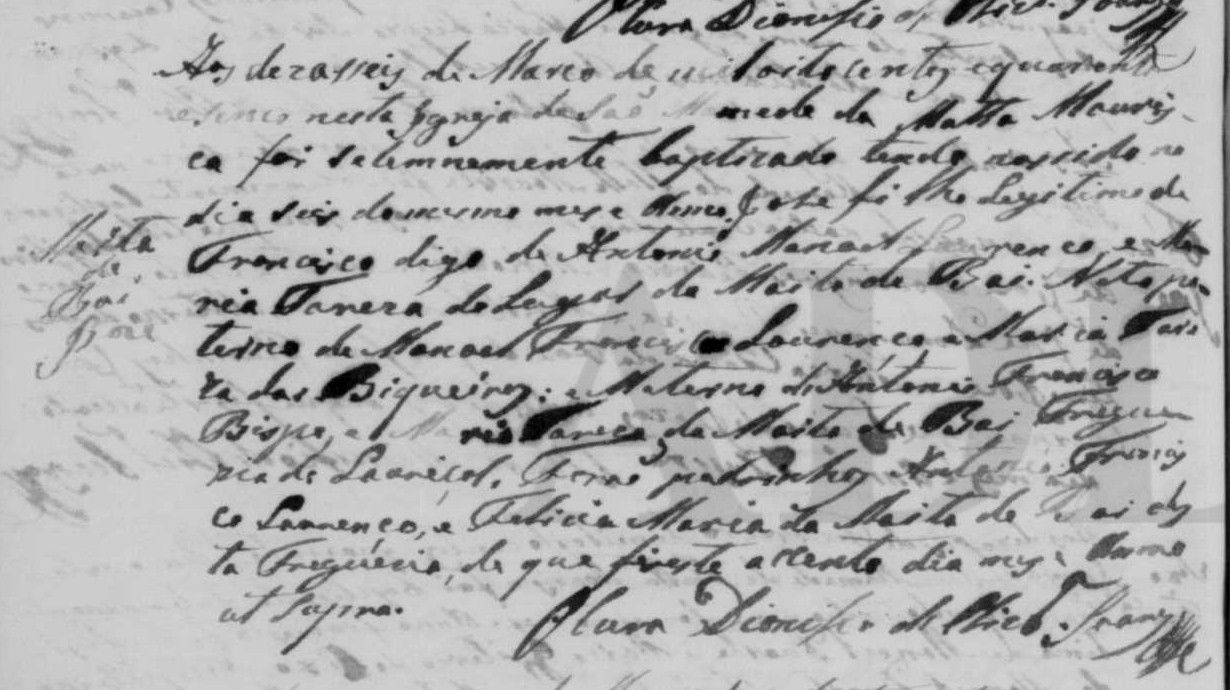 Dionisio
Aos dezasseis de Março de mil oitocentos e quarenta
e sinco nesta Igreja de São Mamede da Matta Mouris-
ca foi selemnemente baptizado tendo nascido no
dia seis do mesmo mes e Anno José filho Legitimo de
Francisco digo de Antonio Manoel Lourenco, e Ma-
Moita
de
Bai
José
ria Tareza do Lugar da Moita de Bai. Neto pa-
terno de Manoel Francisco Lourenco e Maria Tare
za das Biqueiras: e Materno de Antonio Francisco
Bispo, e Maria Tareza da Moita de Bai Fregue
zia de Louriçal. Forao padrinhos Antonio Francis
co Lourenço, e Felicia Maria da Moita de Bai des
ta Freguecia, de que fis este acento dia mes e Anno
ut supra.
Dionisio de
ADL